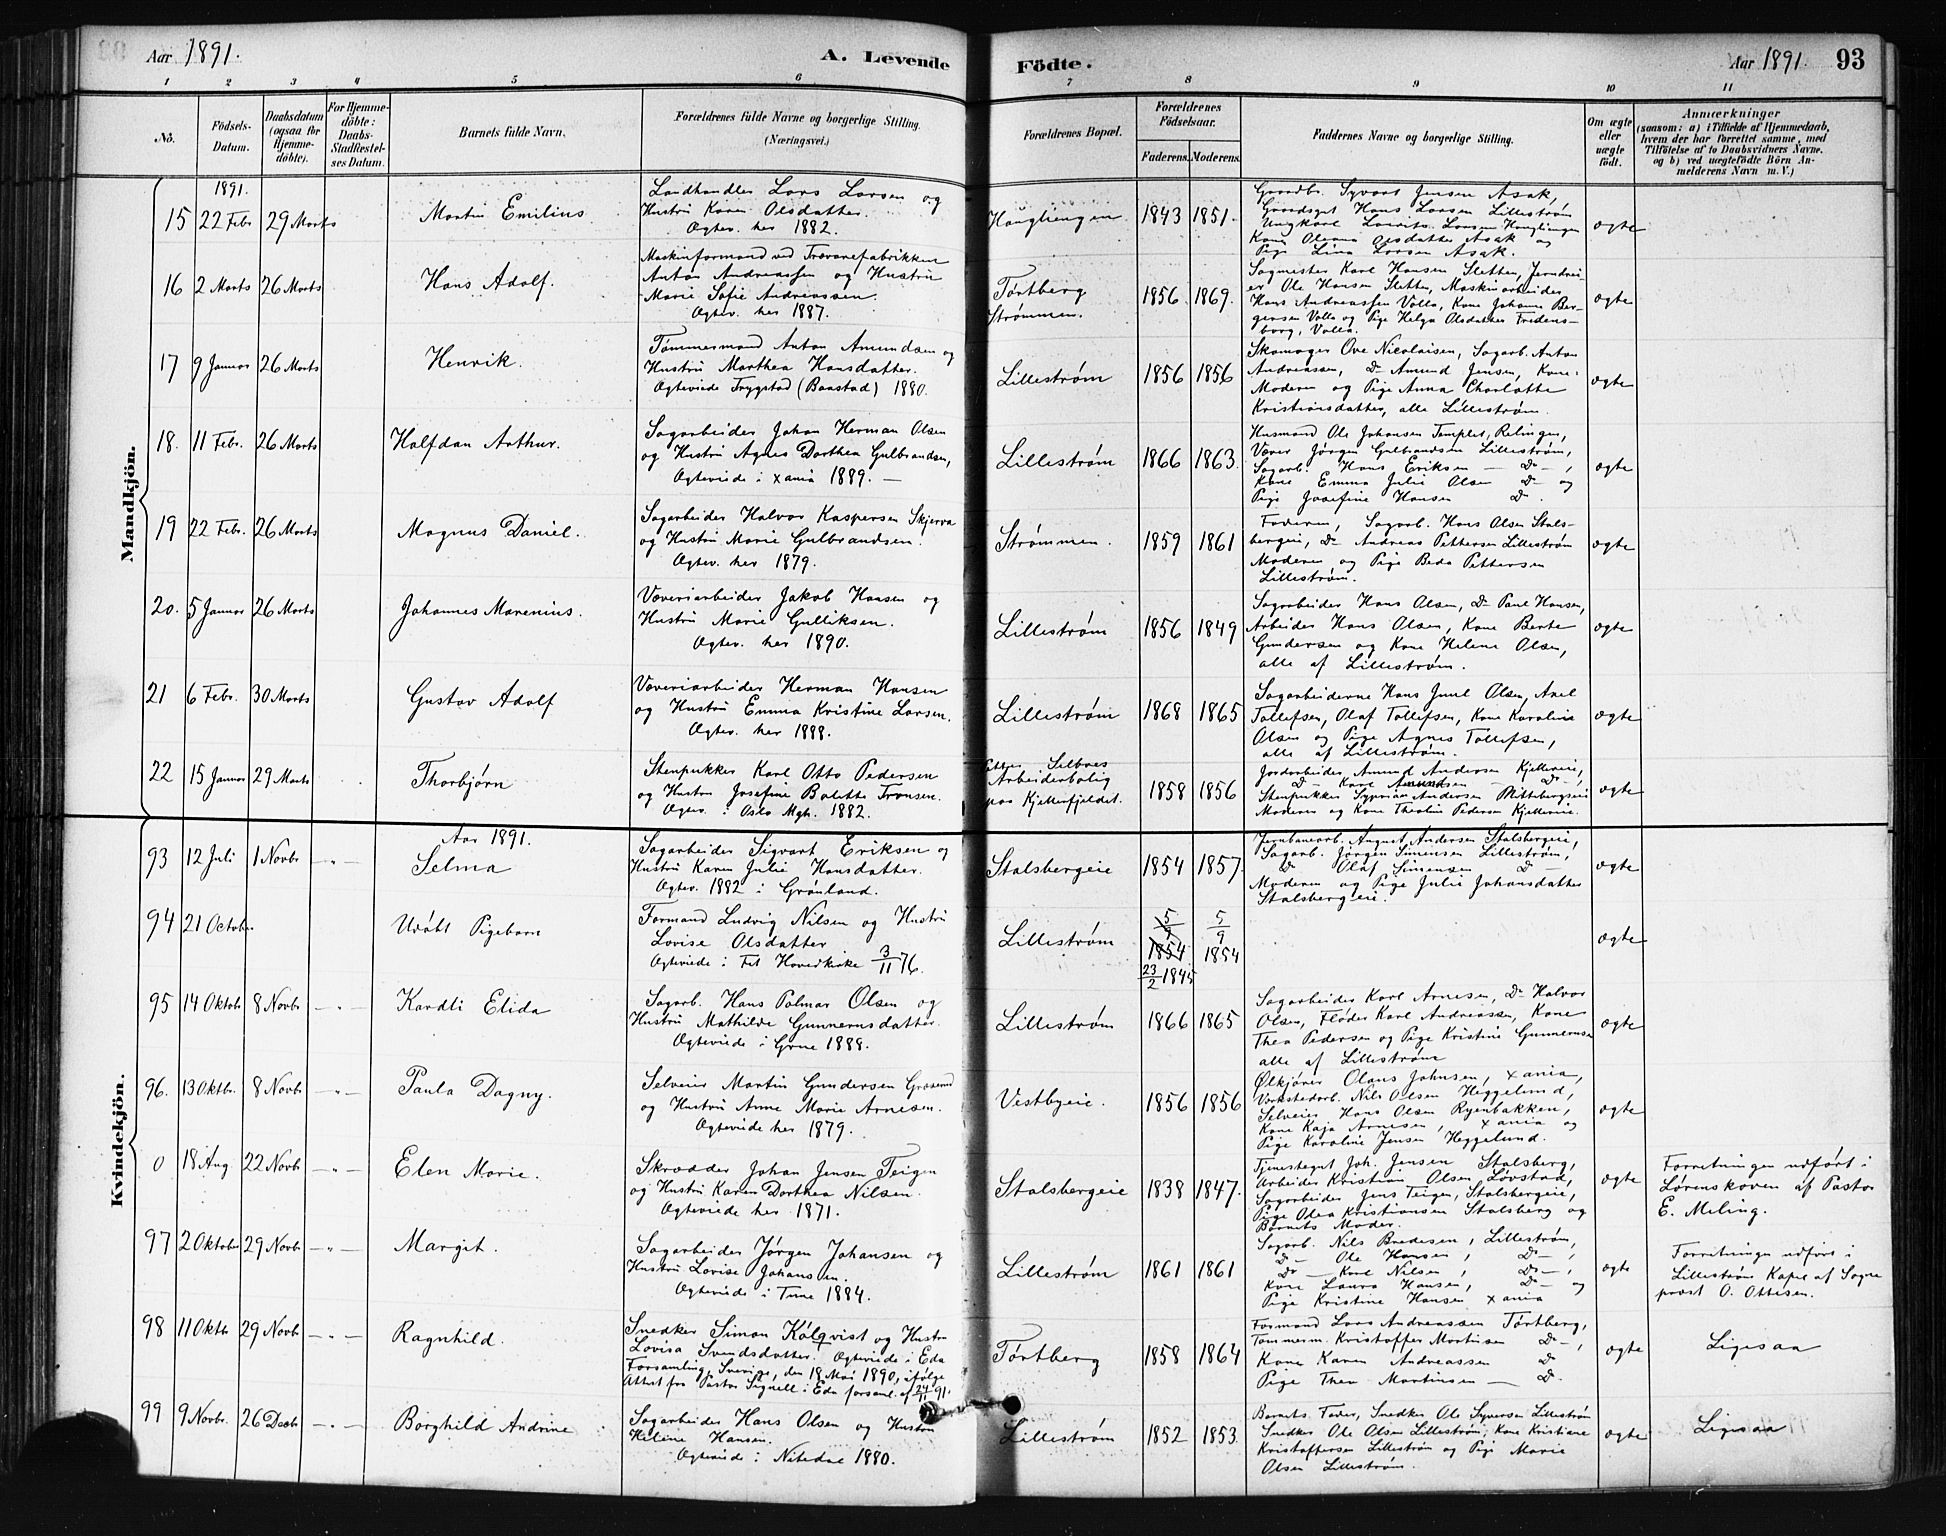 Aar 1891.
A. Levende Födte.
Aar 1891. 93
1 2 3 4 5 6 7 8 9 10 11
No.
Födsels-Datum.
Daabsdatum (ogsaa for Hjemmedöbte).
For Hjemmedöbte: Daabs-Stadfæstelses Datum.
Barnets fulde Navn.
Forældrenes fulde Navne og borgerlige Stilling. (Næringsvei.)
Forældrenes Bopæl.
Forældrenes Födselsaar.
Faderens. Moderens.
Faddernes Navne og borgerlige Stilling.
Om ægte eller uægte födt.
Anmærkninger
(saasom: a) i Tilfælde af Hjemmedaab, hvem der har forrettet samme, med Tilföielse af to Daabsvidners Navne, og b) ved uægtefödte Börn Anmelderens Navn m. V.)
Mandkjön.
1891.
15 22 Febr 29 Marts Martin Emilius
Landhandler Lars Larsen og
Hustru Karen Olsdatter.
Ægtev. her 1882.
Haugliengen 1843 1851.
Gaardbr. Syvert Jensen Asak,
Gaardsgut Hans Larsen Lillestrøm
Ungkarl Lauritz Larsen Hauglingen
Kone Oleana Olsdatter Asak og
Pige Lina Larsen Asak.
ægte
16 2 Marts 26 Marts Hans Adolf.
Maskinformand ved Trævarefabrikken
Anton Andreassen og Hustru
Marie Sofie Andreassen.
Ægtev. her 1887.
Tørtberg
Strømmen.
1856. 1869.
Sagmester Karl Hansen Sletten, Jerndrei-
er Ole Hansen Sletten, Maskinarbeider
Hans Andreassen Volla, Kone Johanne Ber-
gersen Volla og Pige Helga Olsdatter Fredens-
borg, Volla.
ægte
17 9 Januar 26 Marts Henrik.
Tømmermand Anton Amundsen og
Hustru Marthea Hansdatter.
Ægteviede Trygstad (Baastad) 1880.
Lillestrøm 1856 1856
Skomager Ove Nicolaisen, Sagarb. Anton
Andreassen, Do Amund Jensen, Kone:
Moderen og Pige Anna Charlotte
Kristiansdatter, alle Lillestrøm.
ægte
18. 11 Febr. 26 Marts Halfdan Arthur.
Sagarbeider Johan Herman Olsen
og Hustru Agnes Dorthea Gulbrandsen,
Ægteviede i Xania 1889. —
Lillestrøm 1866 1863
Husmand Ole Johansen Templet, Relingen,
Væver Jørgen Gulbrandsen Lillestrøm,
Sagarb. Hans Eriksen — Do —,
Kone Emma Julie Olsen Do og
Pige Josefine Hansen Do.
ægte
19 22 Febr. 26 Marts Magnus Daniel.
Sagarbeider Halvor Kaspersen Skjerva
og Hustru Marie Gulbrandsen.
Ægtev. her 1879.
Strømmen. 1859 1861
Faderen, Sagarb. Hans Olsen Stals-
bergeie, Do Andreas Pettersen Lillestrøm
Moderen og Pige Beda Pettersen
Lillestrøm.
ægte
20. 5 Januar 26 Marts Johannes Marenius.
Væveriarbeider Jakob Hansen og
Hustru Marie Gulliksen.
Ægtev. her 1890.
Lillestrøm 1856 1849
Sagarbeider Hans Olsen, Do Paul Hansen,
Arbeider Hans Olsen, Kone Berte
Gundersen og Kone Helene Olsen,
alle af Lillestrøm.
ægte
21 6 Febr. 30 Marts Gustav Adolf
Væveriarbeider Herman Hansen
og Hustru Emma Kristine Larsen.
Ægtev. her 1888.
Lillestrøm 1868 1865
Sagarbeiderne Hans Juul Olsen, Axel
Tollefsen, Olaf Tollefsen, Kone Karoline
Olsen og Pige Agnes Tollefsen,
alle af Lillestrøm.
ægte
22 15 Januar 29 Marts Thorbjørn
Stenpukker Karl Otto Pedersen
og Hustru Josefine Bolette Fransen.
Ægtev. i Oslo Mgh. 1882.
Arbeiderbolig
paa Kjellerfjeldet.
1858 1856
Jordarbeider Amund Andersen Kjellereie,
Do — Karl Amundsen — Do —,
Stenpukker Syprian Andersen
Moderen og Kone Theoline Pedersen Kjellereie.
ægte
Kvindekjön.
Aar 1891.
93 12 Juli 1 Novbr —"— Selma
Sagarbeider Sigvart Eriksen og
Hustru Karen Julie Hansdatter.
Ægtev. 1882 i Grønland.
Stalsbergeie 1854 1857.
Jernbanearb. August Andersen Stalsbergeie,
Sagarb. Jørgen Simensen Lillestrøm,
Do Olaf Simensen Do —
Moderen og Pige Julie Johansdatter
Stalsbergeie.
ægte
94 21 October Udøbt Pigebarn
Formand Ludvig Nilsen og Hustru
Lovise Olsdatter
Ægteviede i Fet Hovedkirke 3/11 76.
Lillestrøm
5/9 1854
23/2 1845
5/9 1854
ægte
95 14 Oktobr 8 Novbr —"— Kardli Elida
Sagarb. Hans Palmar Olsen og
Hustru Mathilde Gunnerusdatter.
Ægteviede i Grue 1888.
Lillestrøm 1866 1865
Sagarbeider Karl Arnesen, Do Halvor
Olsen, Fløder Karl Andreassen, Kone
Thea Pedersen og Pige Kristine Gunnerusen
alle af Lillestrøm
ægte
96. 13 Oktbr. 8 Novbr —"— Paula Dagny.
Selveier Martin Gundersen
og Hustru Anne Marie Arnesen.
Ægteviede her 1879.
Vestbyeie. 1856 1856
Ølkjører Olaus Johnsen, Xania,
Værkstedarb. Nils Olsen Heggelund,
Selveier Hans Olsen Ryenbakken,
Kone Kaja Arnesen, Xania og
Pige Karoline Jensen Heggelund.
ægte
0 18 Aug 22 Novbr —"— Elen Marie.
Skrædder Johan Jensen Teigen
og Hustru Karen Dorthea Nilsen.
Ægteviede her 1871.
Stalsbergeie 1838 1847.
Tjenestegut Joh. Jensen Stalsberg,
Arbeider Kristian Olsen Løvstad,
Sagarbeider Jens Teigen, Stalsbergeie,
Pige Odea Kristiansen Stalsberg og
Barnets Moder.
ægte
Forretningen udført i
Lørenskoven af Pastor
E. Meling.
97 2 Oktober 29 Novbr —"— Margit.
Sagarbeider Jørgen Johansen og
Hustru Lovise Johansen.
Ægteviede i Tune 1884.
Lillestrøm 1861 1861
Sagarb. Nils Bredesen, Lillestrøm,
Do — Ole Hansen, Do —,
Do — Karl Nilsen, Do —,
Kone Laura Hansen, Do — og
Pige Kristine Hansen Xania
ægte
Forretningen udført i
Lillestrøm Kapel af Sogne
præst O. Ottesen.
98 11 Oktbr 29 Novbr —"— Ragnhild.
Snedker Simon Kölqvist og Hustru
Lovisa Svendsdatter. Ægteviede i Eda
Forsamling, Sverige, den 18 Mai 1890, ifølge
Attest fra Pastor Signell i Eda forsaml. af 24/11 91.
Tørtberg 1858 1864
Formand Lars Andreassen Tørtberg,
Tømmerm. Kristoffer Martinsen Do —,
Kone Karen Andreassen Do
Pige Thea Martinsen — Do.
ægte
Ligesaa
99 9 Novbr. 26 Decbr —"— Borghild Andrine
Sagarbeider Hans Olsen og Hustru
Helene Hansen.
Ægteviede i Nitedal 1880.
Lillestrøm 1852 1853
Barnets Fader, Snedker Ole Syversen Lillestrøm
Snedker Ole Olsen Lillestrøm, Kone Kristiane
Kristoffersen Lillestrøm og Pige Marie
Olsen Lillestrøm.
ægte
Ligesaa